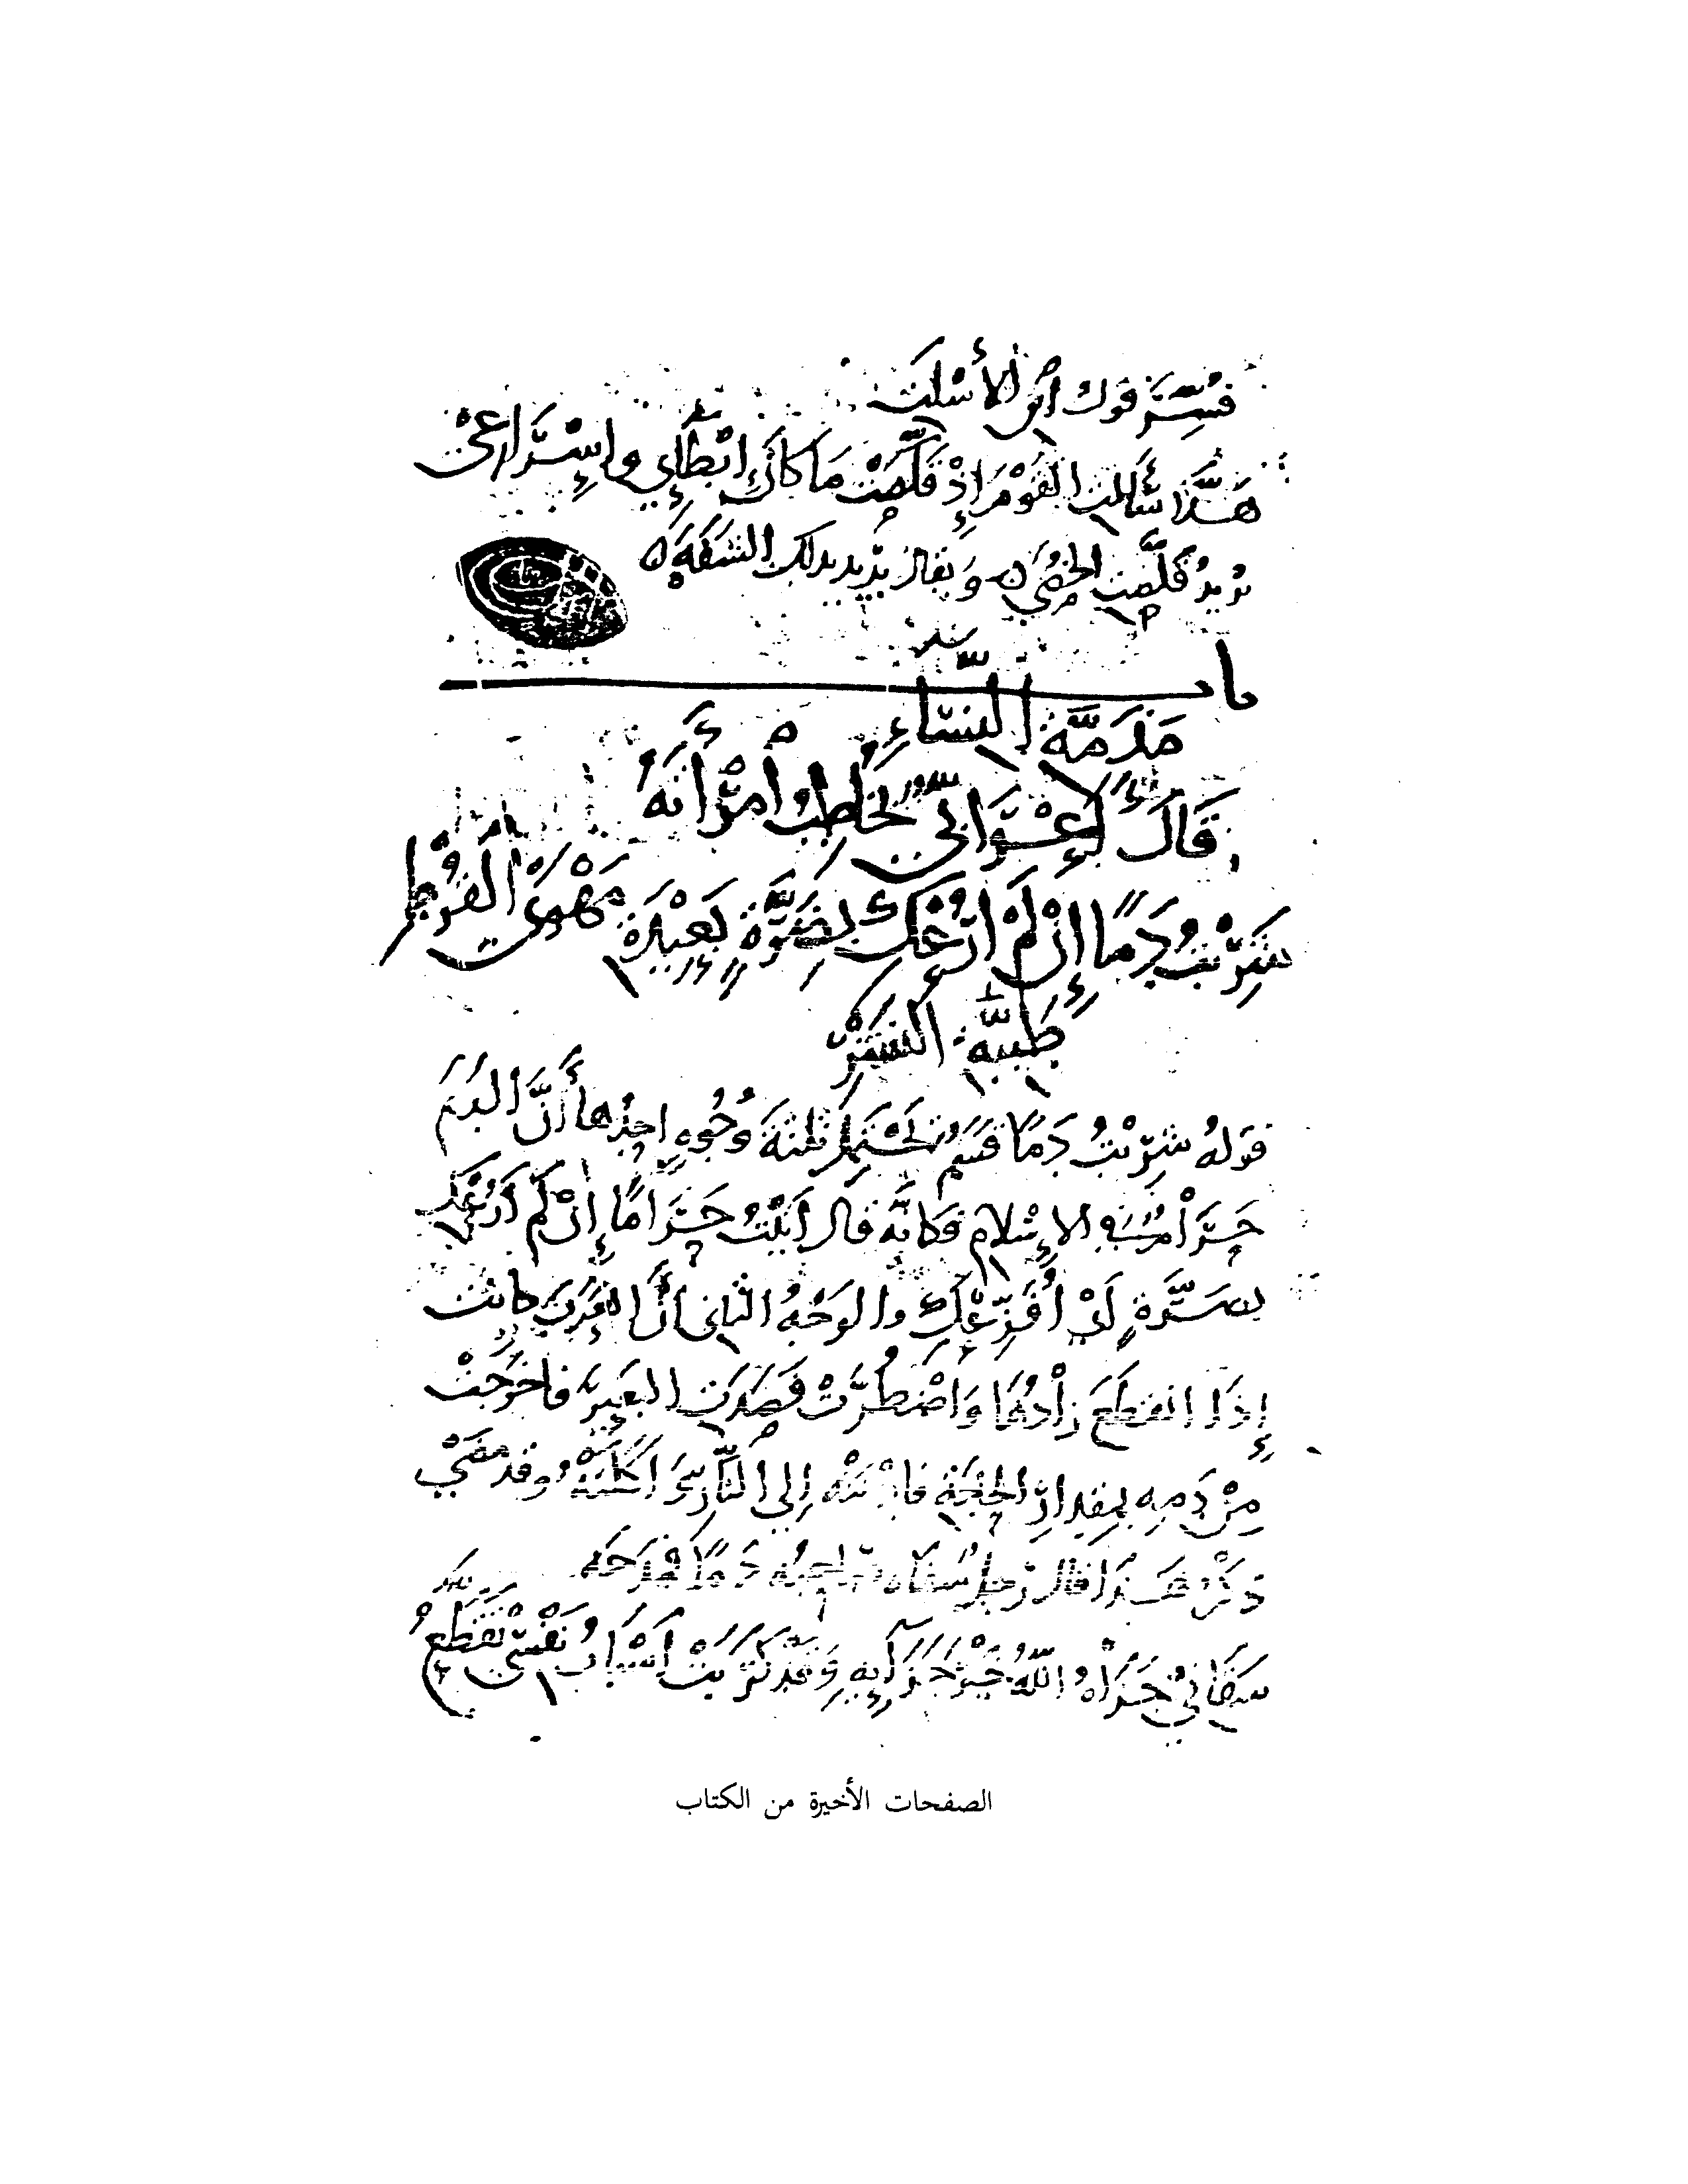 فُسِّرَ قول ابن الأسلت
هَذَا سَأَلت القَوْمَ إِذْ قَلَّصَتْ مَا كَانَ إبْطَائِي وإسْرَاعِي
يُرِيدُ قَلَّصَت الخُصَى وَيقال يُرِيد بذلك الشفَه
باب
مَذَمَّة النِّسَاءِ
قَالَ أَعْرَابِيٌّ يُخَاطِبُ امْرَأَتَهُ
شَرِبْتُ دَمًا إِنْ لَمْ أَرُعْكِ بِضَرَّةٍ بَعِيدَة مَهْوَى القُرْطِ
طَيِّبَة النَّشْرِ
قولهُ شَرِبْتُ دَمًا قَسَم يَحْتَمِل ثلثةَ وُجُوهٍ احدُها أَنَّ الدَمَ
حَرَامٌ في الإِسْلامِ فكانه قال أَتَيْتُ حَرَامًا إِن لَم أَرُعْكِ
بضَرَّةٍ أي أُفَزِّعْكِ والوَجْهُ الثاني أنَّ العَرَبَ كانت
إِذَا انقَطَعَ زَادُهَا وَاضْطُرَّتْ فَصَدَت البَعِيرَ فاخرَجَتْ
مِنْ دَمِهِ بمقدارِ الحاجَة فَادْنَتْه إلى النَّارِ ثمَّ اكَلَتْهُ وقد مضى
ذكرُ هَذا قال رَجل سَقَاه صَاحِبُه دَمًا فمدَحَه
سَقَانِي جَزَاهُ اللهُ خَيْرَ جَزَائِهِ وَقَدْ كَرَبَتْ أَسْبَابُ نَفْسِي تَقَطَّعُ
الصفحات الأخيرة من الكتاب